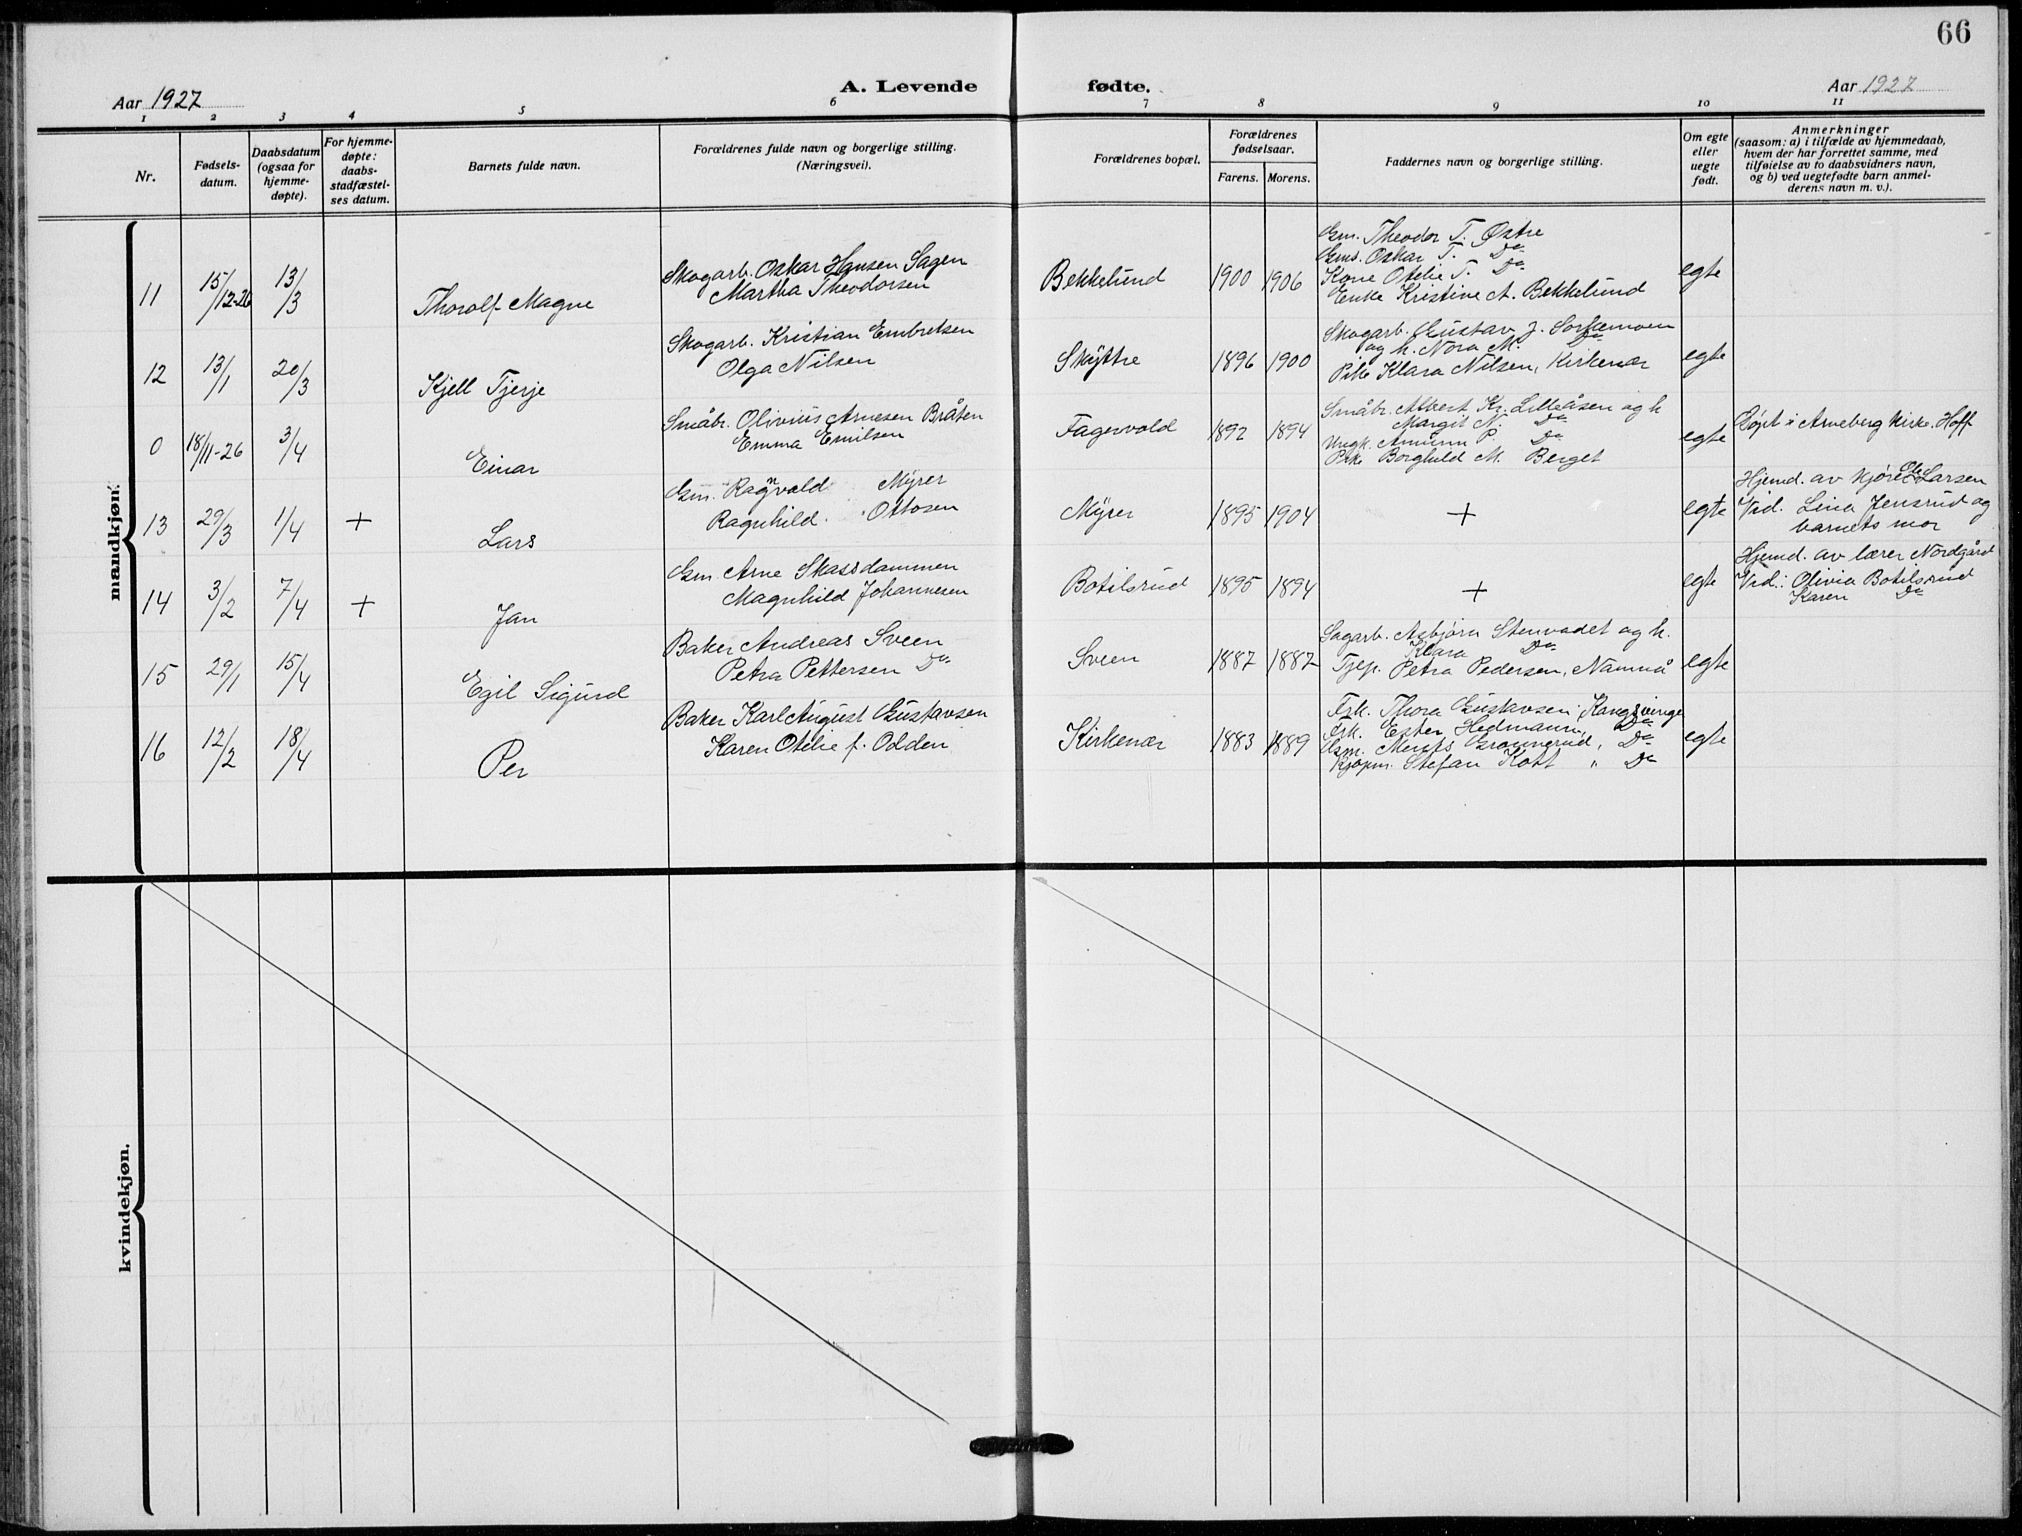 66
A. Levende fødte.
Aar 1927
Aar 1927
1 2 3 4 5 6 7 8 9 10 11
Nr.
Fødsels-
datum.
Daabsdatum
(ogsaa for
hjemme-
døpte).
For hjemme-
døpte:
daabs-
stadfæstel-
ses datum.
Barnets fulde navn.
Forældrenes fulde navn og borgerlige stilling.
(Næringsvei).
Forældrenes bopæl.
Forældrenes
fødselsaar.
Farens. Morens.
Faddernes navn og borgerlige stilling.
Om egte
eller
uegte
født.
Anmerkninger
(saasom: a) i tilfælde av hjemmedaab,
hvem der har forrettet samme, med
tilføielse av to daabsvidners navn,
og b) ved uegtefødte barn anmel-
derens navn m. v.).
mandkjøn.
11 15/12-26 13/3
Thorolf Magne
Skogarb. Oskar Hansen Sagen
Martha Theodorsen
Bekkelund 1900 1906
Gm. Theodor T. Østre
Gms. Oskar T. Do
Kone Otelie T. Do
Enke Kristine A. Bekkelund
egte
12 13/1 20/3
Kjell Tjerje
Skogarb. Kristian Embretsen
Olga Nilsen
Skyttre 1896 1900
Skogarb. Gustav J. Sorkemoen
og h. Nora M. Do
Pike Klara Nilsen, Kirkenær
egte
0 18/11-26 3/4
Einar
Småbr. Olivius Arnesen Bråten
Emma Emilsen
Fagervold 1892 1894
Småbr. Albert Kr. Lilleåsen og h
Margit N. Do
Ungk. Amunn P. Do
Pike Borghild M. Berget
egte
Døpt i Arneberg kirke, Hoff
13 29/3 1/4 +
Lars
Gm. Ragnvald Myrer
Ragnhild Ottosen
Myrer 1895 1904
+
egte
Hjemd. av kjøre Ole Larsen
Vid. Lina Jensrud og
barnets mor
14 3/2 7/4 +
Jan
Gm. Arne Skassdammen
Magnhild Johannesen
Botilsrud 1895 1894
+
egte
Hjemd. av lærer Nordgård
Vid.: Olivia Botilsrud
Karen Do
15 29/1 15/4
Egil Sigurd
Baker Andreas Sveen
Petra Pettersen Do
Sveen 1887 1887
Sagarb. Asbjørn Stenvadet og h.
Klara Do
Tjep. Petra Pedersen, Namnå
egte
16 12/2 18/4
Per
Baker Karl August Gustavsen
Karen Otelie f. Odden
Kirkenær 1883 1889
Frk. Thora Gustavsen, Kongsvinge
Frk. Ester Hedmann, Do
Gm. Grønnerud, Do
Kjøpm. Stefan Kott " Do
egte
kvindekjøn.